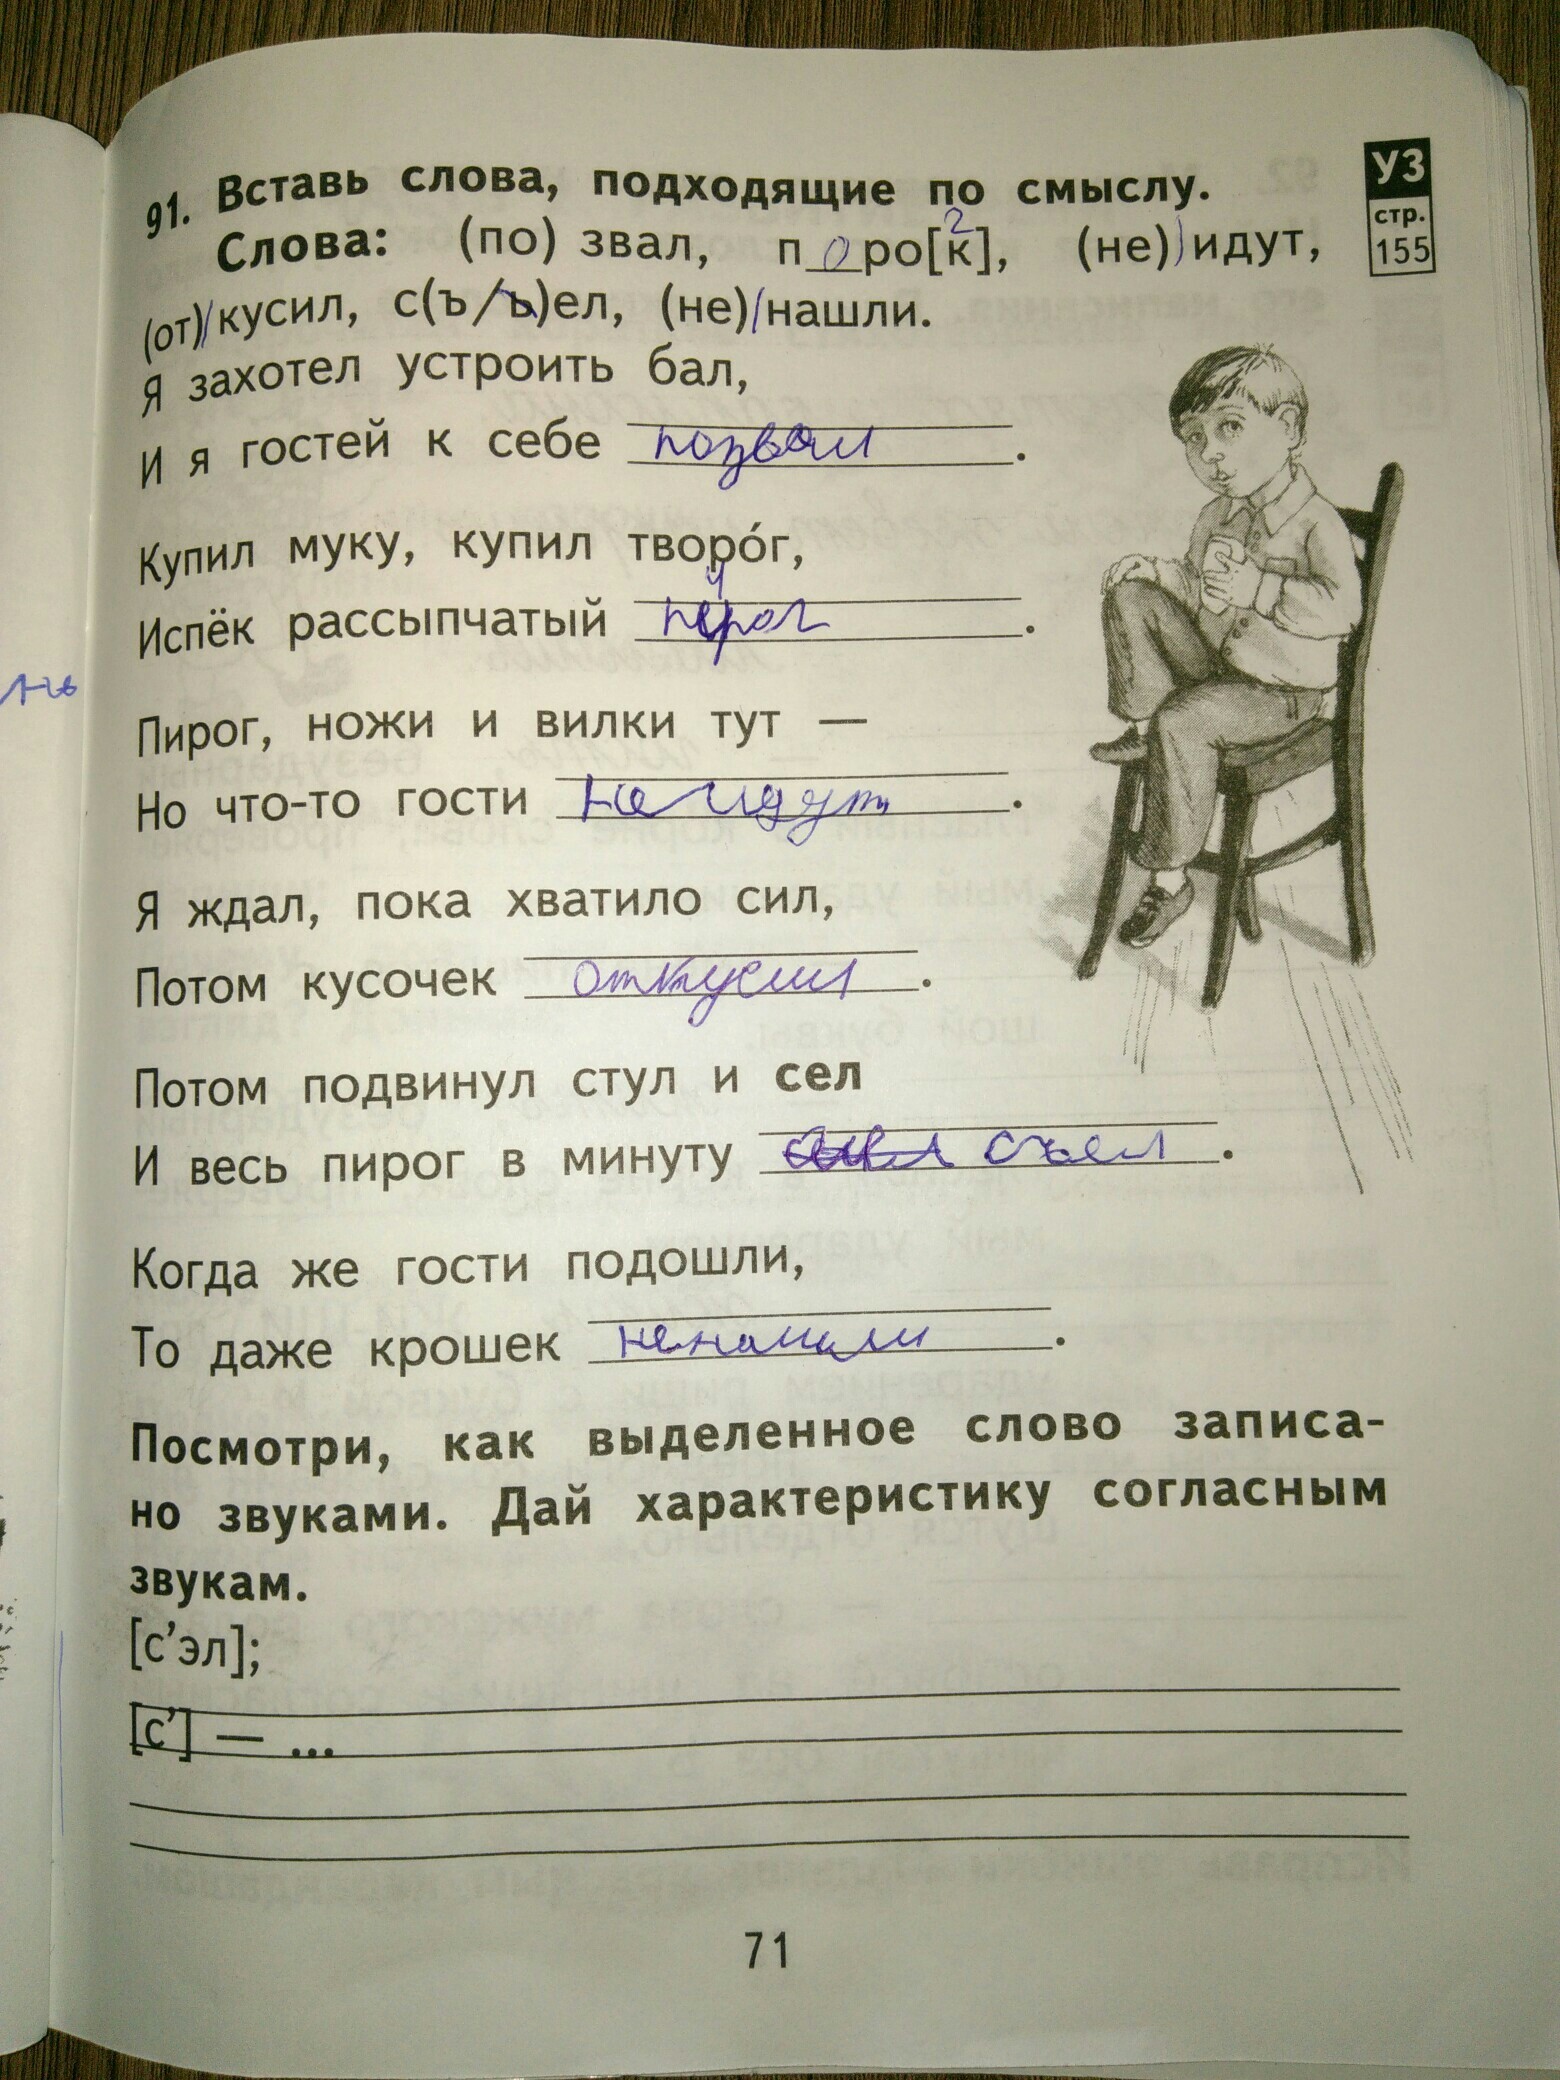 91. Вставь слова, подходящие по смыслу.
УЗ
стр.
155
Слова: (по) звал, п_о_ро[к]г, (не)/идут,
(от)/кусил, с(ъ/ь)ел, (не)/нашли.
Я захотел устроить бал,
И я гостей к себе позвал.
Купил муку, купил творо́г,
Испёк рассыпчатый пирог.
Пирог, ножи и вилки тут —
Но что-то гости не идут.
Я ждал, пока хватило сил,
Потом кусочек откусил.
Потом подвинул стул и сел
И весь пирог в минуту съел.
Когда же гости подошли,
То даже крошек ненашли.
Посмотри, как выделенное слово записа-
но звуками. Дай характеристику согласным
звукам.
[с’эл];
[с’] — ...
71